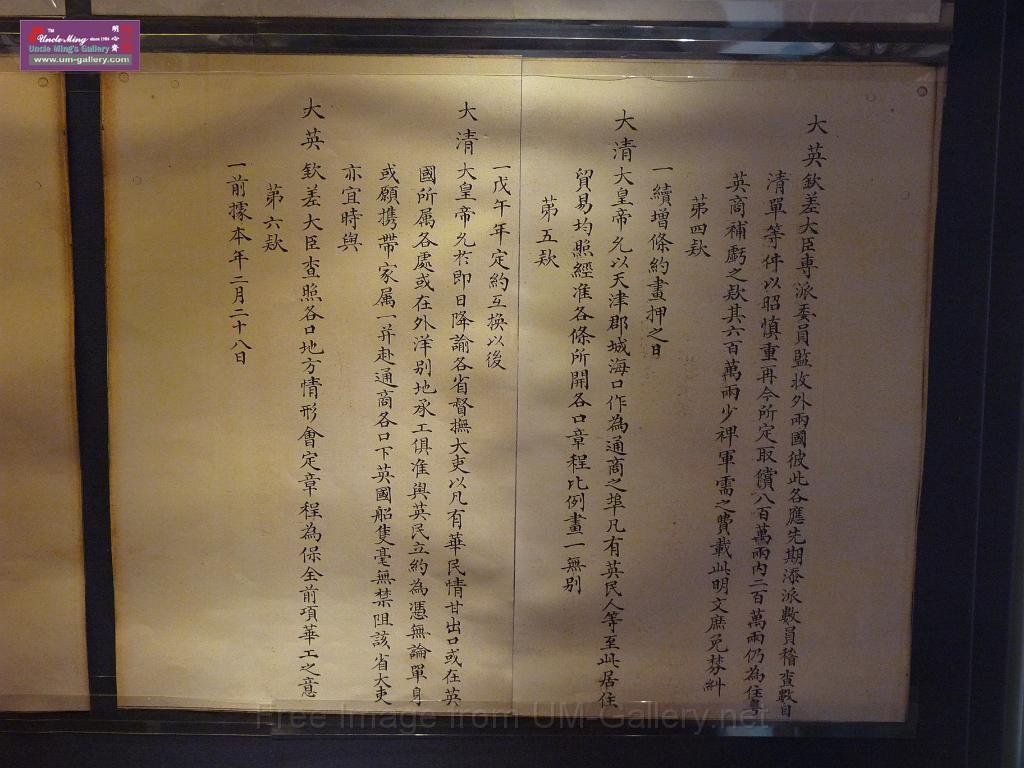 大英欽差大臣專派委員監收外兩國彼此各應先期添派數員稽查數目
清單等件以昭慎重再今所定取償八百萬兩內二百萬兩仍為住粵
英商補虧之款其六百萬兩少裨軍需之費載此明文庶免棼糾
第四款
一續增條約畫押之日
大清大皇帝允以天津郡城海口作為通商之埠凡有英民人等至此居住
貿易均照經准各條所開各口章程比例畫一無別
第五款
一戊午年定約互換以後
大清大皇帝允於即日降諭各省督撫大吏以凡有華民情甘出口或在英
國所属各處或在外洋別地承工俱准與英民立約為憑無論單身
或願攜帶家属一并赴通商各口下英國船隻毫無禁阻該省大吏
亦宜時與
大英欽差大臣查照各口地方情形會定章程為保全前項華工之意
第六款
一前據本年二月二十八日
TM
Uncle Ming since 1986
明心齋
Uncle Ming's Gallery
www.um-gallery.com
Free Image from UM-Gallery.net